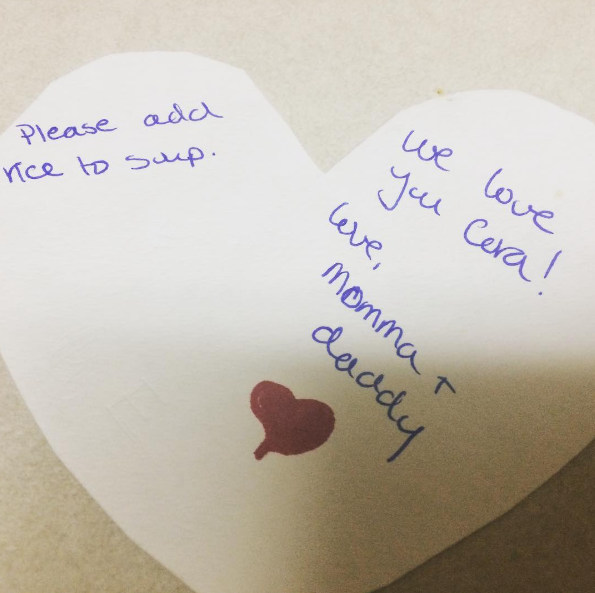 Please add
rice to soup.
We love
you Cora!
love,
momma +
daddy